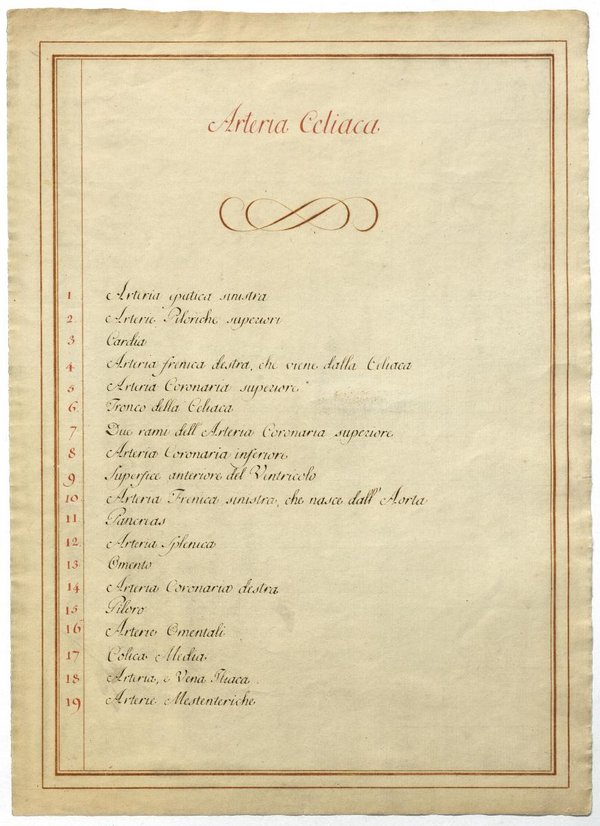 Arteria Celiaca
1 Arteria epatica sinistra
2. Arterie Piloriche superiori
3 Cardia
4 Arteria frenica destra, che viene dalla Celiaca
5 Arteria Coronaria superiore
6. Tronco della Celiaca
7 Due rami dell'Arteria Coronaria superiore
8 Arteria Coronaria inferiore
9 Superfice anteriore del Ventricolo
10. Arteria Frenica sinistra, che nasce dall'Aorta
11. Pancreas
12. Arteria Splenica
13. Omento
14 Arteria Coronaria destra
15 Piloro
16 Arterie Omentali
17 Colica Media
18 Arteria, e Vena Iliaca
19 Arterie Mestenteriche